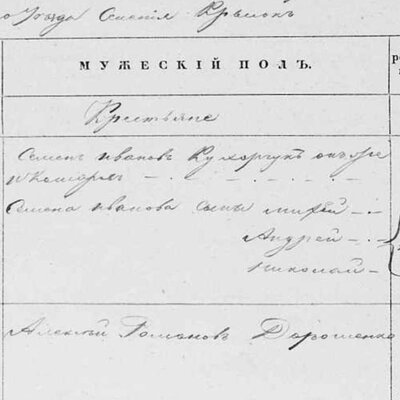 о уѣзда Селенія Крымокъ
МУЖЕСКІЙ ПОЛЪ.
Крестьяне
Семенъ Ивановъ Кухаргукъ онъ же
Семена Иванова сыны
Андрей
Николай
Алексѣй Романовъ Дорошенко